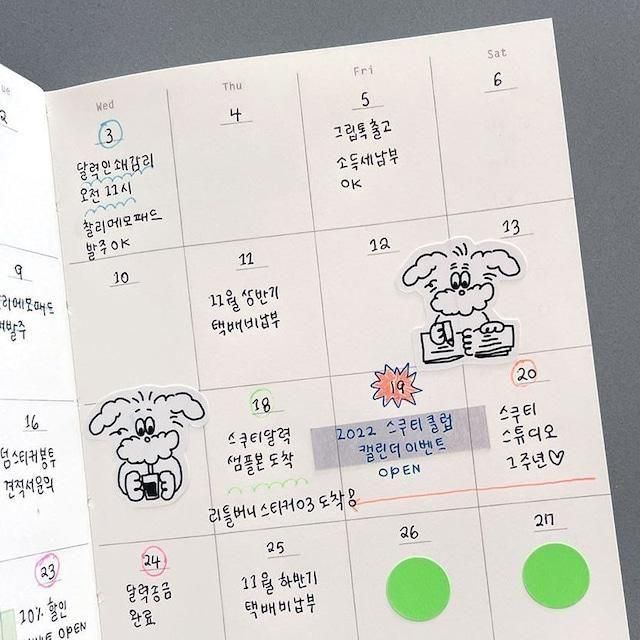 ue
Wed
Thu
Fri
Sat
2
3
달력인쇄감리
오전 11시
찰리메모패드
발주 OK
4
5
그립톡출고
소득세납부
OK
6
9
리메모패드
발주
10
11
11월 상반기
택배비납부
12
13
16
스티커봉투
견적서문의
18
스쿠티달력
샘플본 도착
리틀버니스티커03 도착!
19
2022 스쿠티 클럽
캘린더 이벤트
OPEN
20
스쿠티
스튜디오
1주년♡
23
10% 할인
OPEN
24
달력송금
완료
25
11월 하반기
택배비납부
26
27